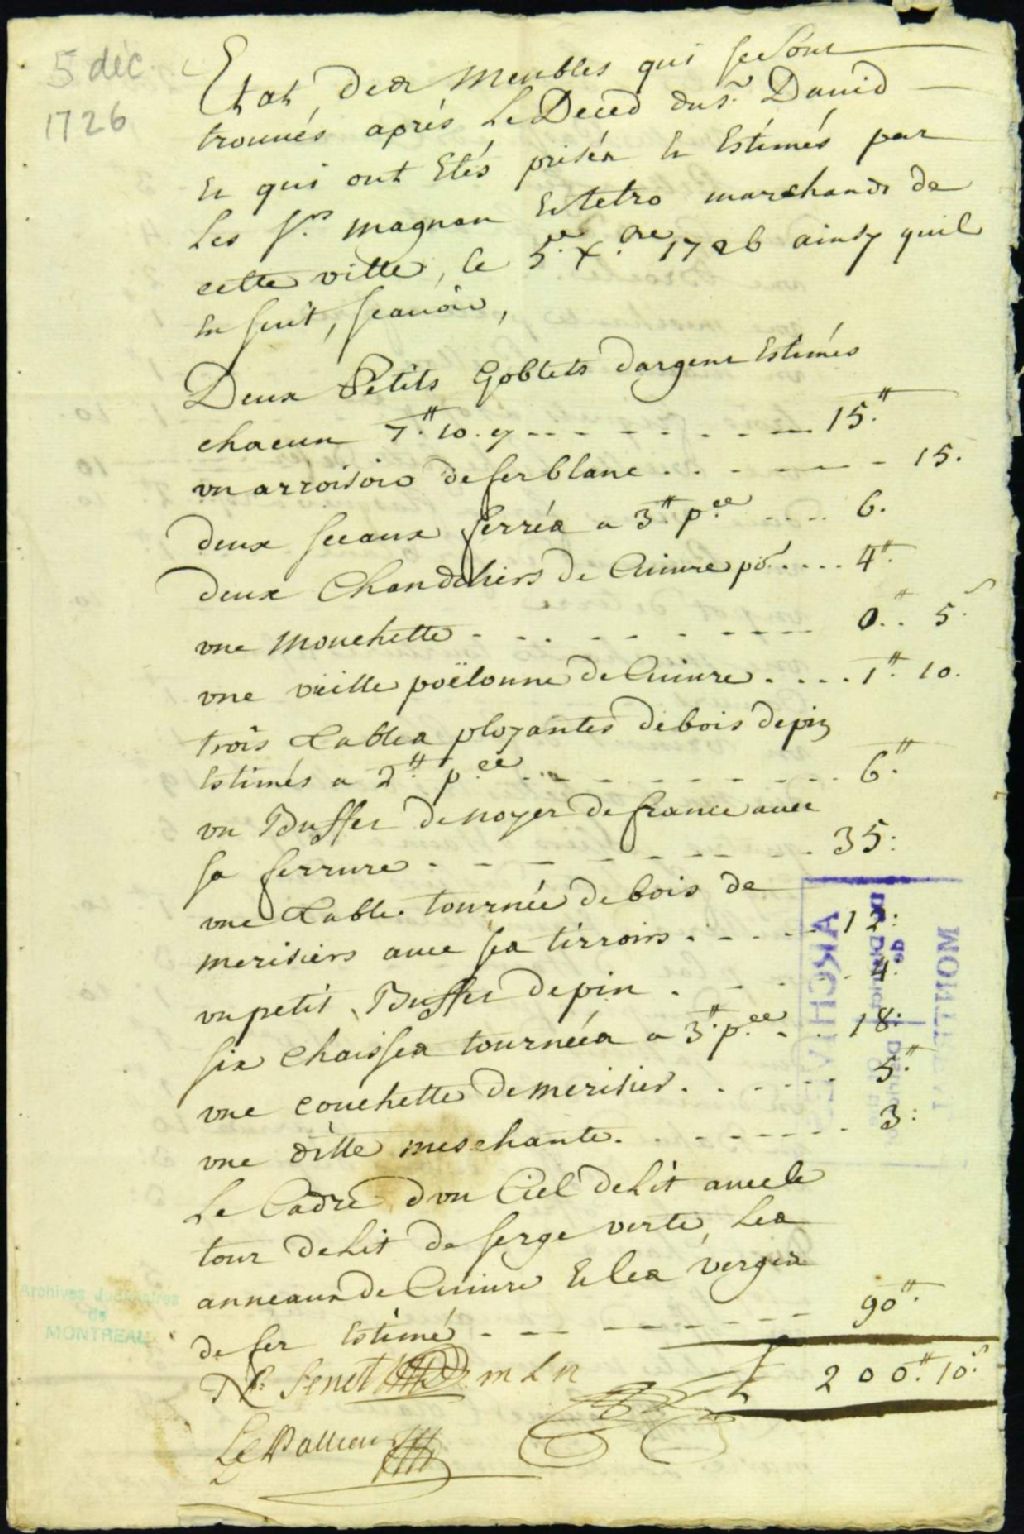 5 déc.
1726
Etat des meubles qui se sont
trouvés aprés Le Deced du Sr. David
Et qui ont Etés prisés Et Estimés par
Les Srs. magnan Et tetro marchands de
cette ville, le 5e. Xbre. 1726 ainsy quil
En suit, scavoir,
Deux Petits Goblets dargent Estimés
chacun 7# 10. s - - - 15#
un arrosoir de fer blanc . . - - - 15.
deux seeaux ferrés a 3# pce .... 6.
deux Chandeliers de Cuivre po. .... 4#
une mouchette - - - - 0# .. 5s
une vieille poëlonne de Cuivre .... 1# 10.
trois tables ployantes de bois de pin
Estimés a 2# pce ... - - - 6#
un Buffet de noyer de france avec
sa ferrure - - - - 35:
une table tournée de bois de
merisiers avec ses tirroirs . - - - 12:
un petit Buffet de pin . - - 4:
six chaisses tournées a 3# pce - . 18:
une couchette de merisier . . - - - 5#
une ditte meschante . . - - - 3:
Le Cadre d'un Ciel de Lit avec le
tour de Lit de serge verte, Les
anneaux de Cuivre Et les verges
de fer Estimé - - - - 90#
200# 10s
Ns. Senet
m L n
Le Pallieur
ARCHIVES
MONTREAL
de
Archives Judiciaires
de
MONTREAL